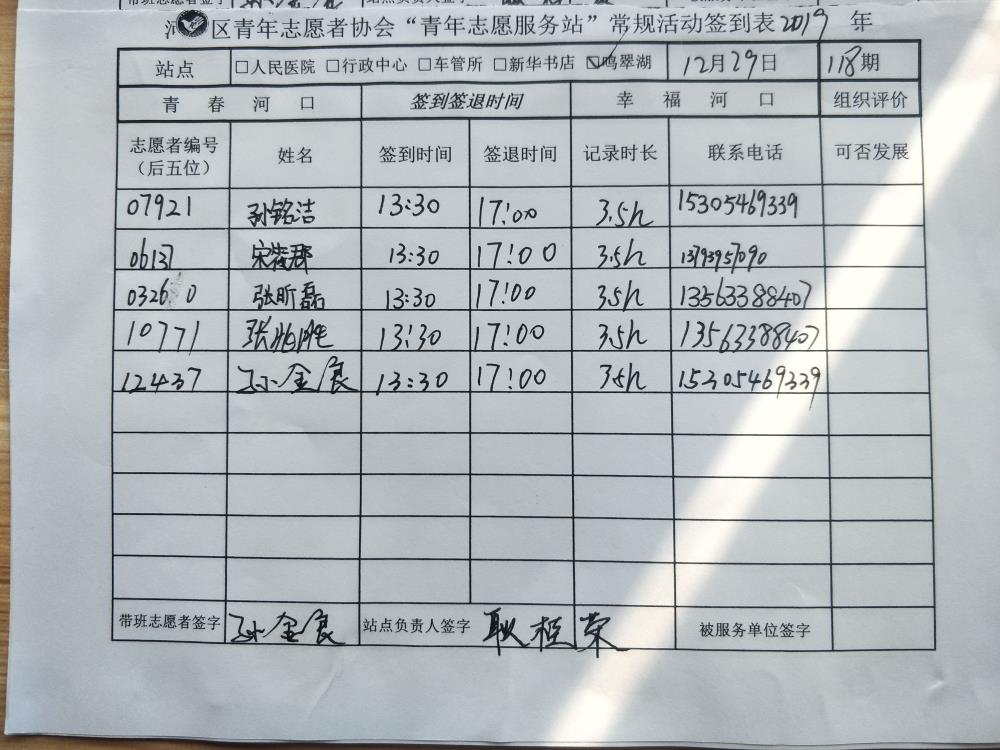 带班志愿者签字 站点负责人签字
河 区青年志愿者协会“青年志愿服务站”常规活动签到表2019年
站点 □人民医院 □行政中心 □车管所 □新华书店 ☑鸣翠湖 12月29日 118期
青春河口 签到签退时间 幸福河口 组织评价
志愿者编号(后五位) 姓名 签到时间 签退时间 记录时长 联系电话 可否发展
07921 孙铭洁 13:30 17:00 3.5h 15305469339
06137 13:30 17:00 3.5h 13793957090
03260 张昕磊 13:30 17:00 3.5h 13563388407
10771 张兆胜 13:30 17:00 3.5h 13563388407
12437 孙金良 13:30 17:00 3.5h 15305469339
带班志愿者签字 孙金良 站点负责人签字 耿桂荣 被服务单位签字